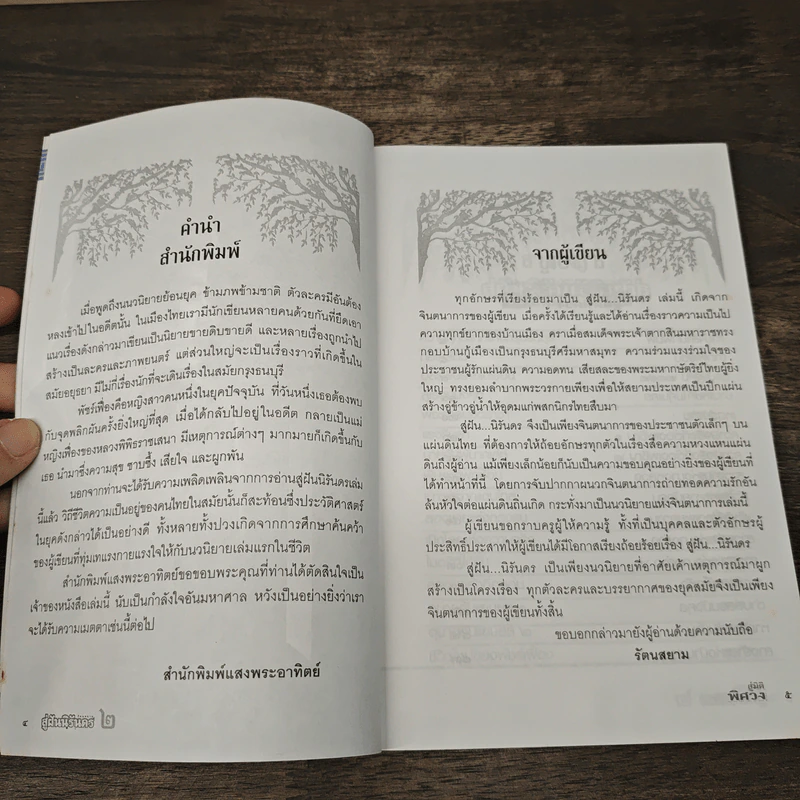 คำนำ
สำนักพิมพ์
เมื่อพูดถึงนนวนิยายย้อนยุค ข้ามภพข้ามชาติ ตัวละครมีอันต้อง
หลงเข้าไปในอดีตนั้น ในเมืองไทยเรามีนักเขียนหลายคนด้วยกันที่ยึดเอา
แนวเรื่องดังกล่าวมาเขียนเป็นนิยายขายดิบขายดี และหลายเรื่องถูกนำไป
สร้างเป็นละครและภาพยนตร์ แต่ส่วนใหญ่จะเป็นเรื่องราวที่เกิดขึ้นใน
สมัยอยุธยา มีไม่กี่เรื่องนักที่จะเดินเรื่องในสมัยกรุงธนบุรี
พัชร์เพื่อคือหญิงสาวคนหนึ่งในยุคปัจจุบัน ที่วันหนึ่งเธอต้องพบ
กับจุดพลิกผันครั้งยิ่งใหญ่ที่สุด เมื่อได้กลับไปอยู่ในอดีต กลายเป็นแม่
หญิงเฟื่องของหลวงพิพิธราชเสนา มีเหตุการณ์ต่างๆ มากมายก็เกิดขึ้นกับ
เธอ นำมาซึ่งความสุข ซาบซึ้ง เสียใจ และผูกพัน
นอกจากท่านจะได้รับความเพลิดเพลินจากการอ่านสู่ฝันนิรันดรเล่ม
นี้แล้ว วิถีชีวิตความเป็นอยู่ของคนไทยในสมัยนั้นก็สะท้อนซึ่งประวัติศาสตร์
ในยุคดังกล่าวได้เป็นอย่างดี ทั้งหลายทั้งปวงเกิดจากการศึกษาค้นคว้า
ของผู้เขียนที่ทุ่มเทแรงกายแรงใจให้กับนวนิยายเล่มแรกในชีวิต
สำนักพิมพ์แสงพระอาทิตย์ขอขอบพระคุณที่ท่านได้ตัดสินใจเป็น
เจ้าของหนังสือเล่มนี้ นับเป็นกำลังใจอันมหาศาล หวังเป็นอย่างยิ่งว่าเรา
จะได้รับความเมตตาเช่นนี้ต่อไป
สำนักพิมพ์แสงพระอาทิตย์
๔ สู่ฝันนิรันดร ๒
จากผู้เขียน
ทุกอักษรที่เรียงร้อยมาเป็น สู่ฝัน...นิรันดร เล่มนี้ เกิดจาก
จินตนาการของผู้เขียน เมื่อครั้งได้เรียนรู้และได้อ่านเรื่องราวความเป็นไป
ความทุกข์ยากของบ้านเมือง คราเมื่อสมเด็จพระเจ้าตากสินมหาราชทรง
กอบบ้านกู้เมืองเป็นกรุงธนบุรีศรีมหาสมุทร ความร่วมแรงร่วมใจของ
ประชาชนผู้รักแผ่นดิน ความอดทน เสียสละของพระมหากษัตริย์ไทยผู้ยิ่ง
ใหญ่ ทรงยอมลำบากพระวรกายเพียงเพื่อให้สยามประเทศเป็นปึกแผ่น
สร้างอู่ข้าวอู่น้ำให้อุดมแก่พสกนิกรไทยสืบมา
สู่ฝัน...นิรันดร จึงเป็นเพียงจินตนาการของประชาชนตัวเล็กๆ บน
แผ่นดินไทย ที่ต้องการให้ถ้อยอักษรทุกตัวในเรื่องสื่อความหวงแหนแผ่น
ดินถึงผู้อ่าน แม้เพียงเล็กน้อยก็นับเป็นความขอบคุณอย่างยิ่งของผู้เขียนที่
ได้ทำหน้าที่นี้ โดยการจับปากกาผนวกจินตนาการถ่ายทอดความรักอัน
ล้นหัวใจต่อแผ่นดินถิ่นเกิด กระทั่งมาเป็นนวนิยายแห่งจินตนาการเล่มนี้
ผู้เขียนขอกราบครูผู้ให้ความรู้ ทั้งที่เป็นบุคคลและตัวอักษรผู้
ประสิทธิ์ประสาทให้ผู้เขียนได้มีโอกาสเรียงถ้อยร้อยเรื่อง สู่ฝัน...นิรันดร
สู่ฝัน...นิรันดร เป็นเพียงนวนิยายที่อาศัยเค้าเหตุการณ์มาผูก
สร้างเป็นโครงเรื่อง ทุกตัวละครและบรรยากาศของยุคสมัยจึงเป็นเพียง
จินตนาการของผู้เขียนทั้งสิ้น
ขอบอกกล่าวมายังผู้อ่านด้วยความนับถือ
รัตนสยาม
สู่มิติ
พิศวง ๕